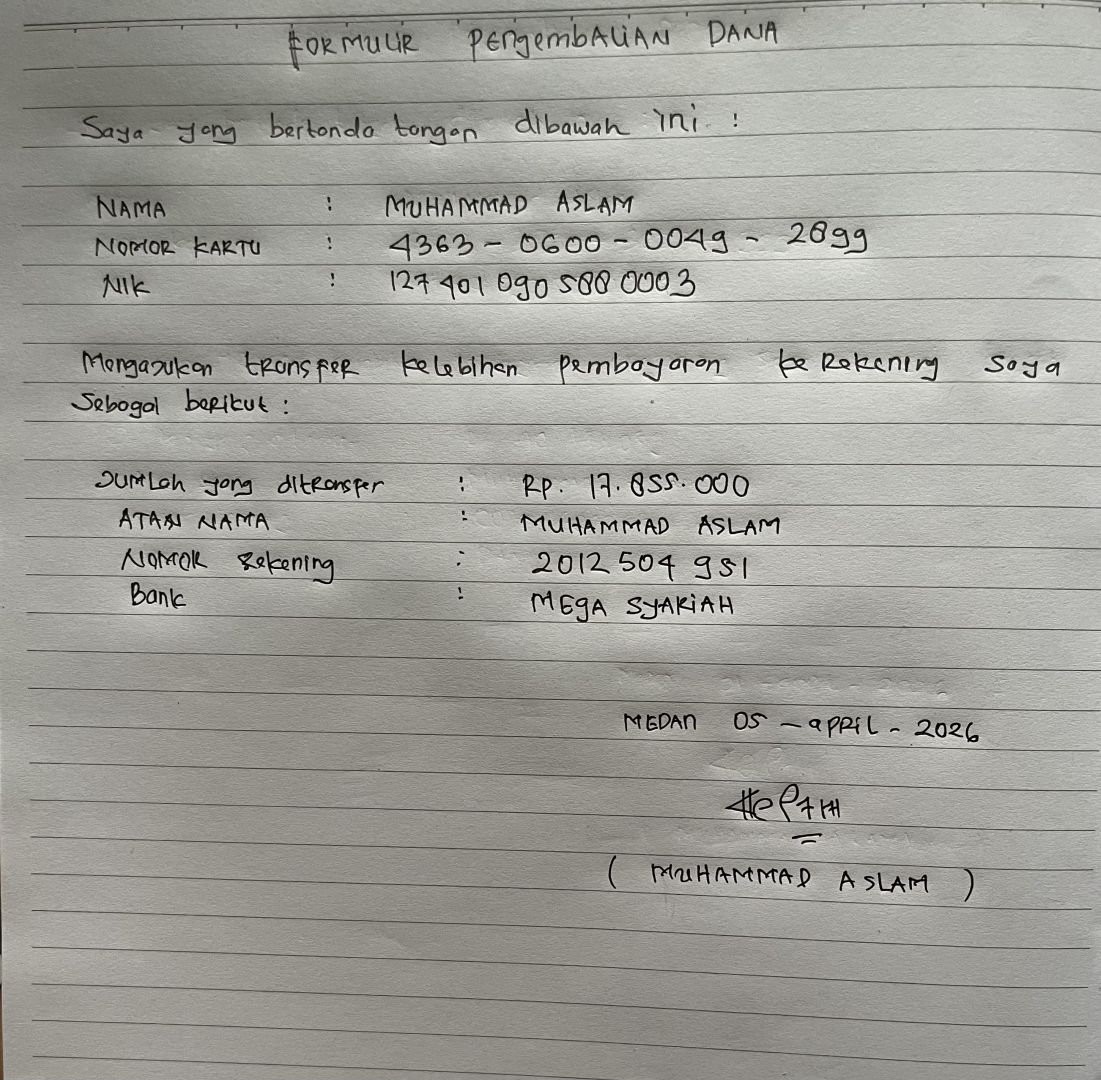 FORMULIR PENGEMBALIAN DANA
Saya yang bertanda tangan dibawah ini :
NAMA : MUHAMMAD ASLAM
NOMOR KARTU : 4363 - 0600 - 0049 - 2899
NIK : 1274010905880003
Mengajukan transfer kelebihan pembayaran ke Rekening saya
Sebagai berikut :
Jumlah yang ditransfer : RP. 17.855.000
ATAS NAMA : MUHAMMAD ASLAM
NOMOR Rekening : 2012 504 951
Bank : MEGA SYARIAH
MEDAN 05 - april - 2026
( MUHAMMAD ASLAM )